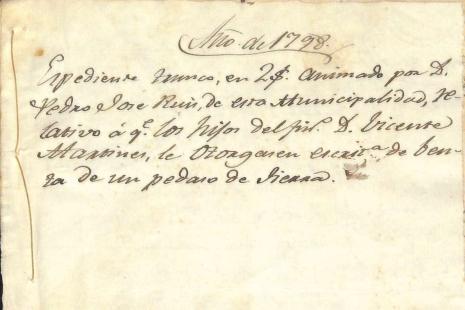 Año de 1798.
Espediente trunco, en 2 f. animado por D.
Pedro Jose Ruis, de esta Municipalidad, re-
lativo á q.e los hijos del fin.o D. Vicente
Martines, le otorgasen escrit.a de ben-
ta de un pedaso de tierra.